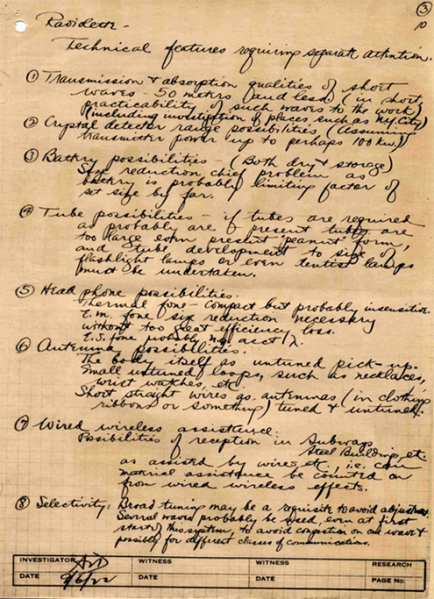 ③
10
Radidext -
Technical features requiring separate attention.
① Transmission & absorption qualities of short
waves - 50 meters (and less) (in short,
practicability of such waves to the work)
(including investigation of places such as NYCity)
② Crystal detector range possibilities (Assuming
transmitter power up to perhaps 100 kw)
③ Battery possibilities - (Both dry & storage)
Size reduction chief problem as
battery is probably limiting factor of
set size by far.
④ Tube possibilities - if tubes are required
as probably are if present tubes are
too large even present "peanut" form,
and tube development to size of
flashlight lamps or even dentist lamps
must be undertaken.
⑤ Head phone possibilities.
Thermal fone - compact but probably insensitive.
E.M. fone size reduction necessary
without too great efficiency loss.
E.S. fone probably no acct
⑥ Antenna possibilities.
The body itself as untuned pick-up.
Small untuned loops, such as necklaces,
wrist watches, etc.
Short straight wires as antennas (in clothing
ribbons or something) tuned & untuned.
⑦ Wired wireless assistance.
Possibilities of reception in Subways,
Steel Buildings, etc.
as assisted by wires, etc, i.e. can
material assistance be counted on
from wired wireless effects.
⑧ Selectivity: Broad tuning may be a requisite to avoid adjustment
Several waves probably be used, even at first
start of this system, to avoid congestion on one wave &
possibly for different classes of communications.
INVESTIGATOR WITNESS WITNESS RESEARCH
DATE 9/6/22 DATE DATE PAGE No.